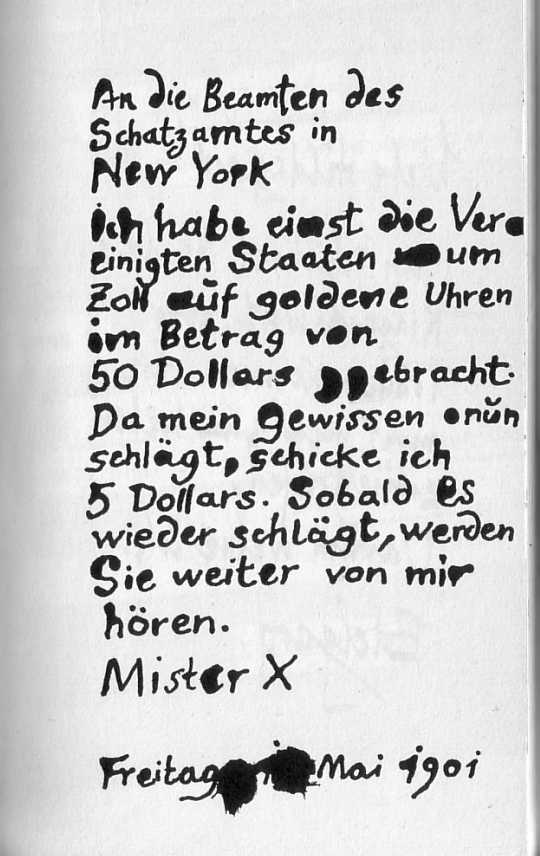 An die Beamten des
Schatzamtes in
New York
ich habe einst die Ver-
einigten Staaten um
Zoll auf goldene Uhren
im Betrag von
50 Dollars gebracht.
Da mein Gewissen nŭn
schlägt, schicke ich
5 Dollars. Sobald es
wieder schlägt, werden
Sie weiter von mir
hören.
Mister X
Freitag Mai 1901